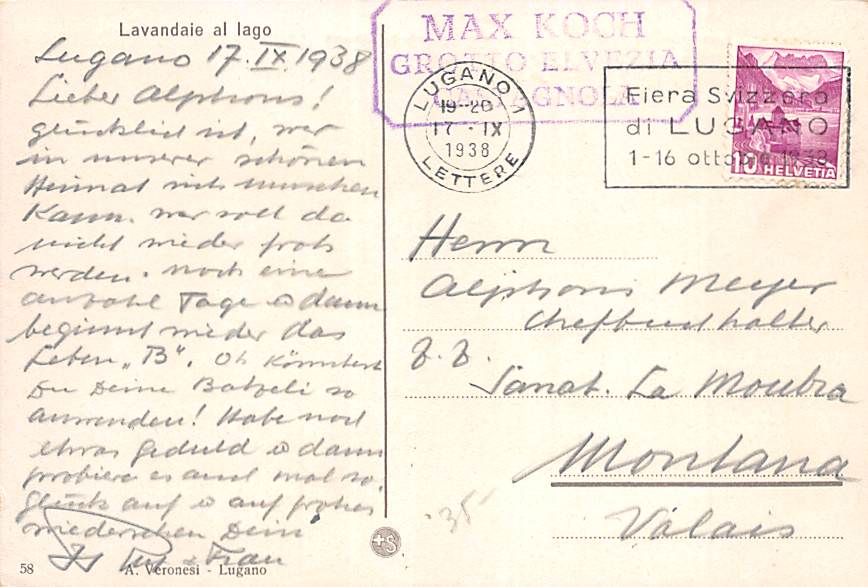 Lavandaie al lago
Lugano 17.IX.1938
Lieber Alphons!
glücklich ist, wer
in unserer schönen
Heimat sich tummeln
kann. wer soll da
nicht wieder froh
werden. noch eine
anzahl Tage u dann
beginnt wieder das
Leben „B“. Oh könntest
Du Deine Batzeli so
anwenden! Habe noch
etwas geduld u dann
probiere es auch mal so.
Glück auf u auf frohes
wiedersehen Dein
& Frau
58
A. Veronesi - Lugano
MAX KOCH
GROTTO ELVEZIA
CASTAGNOLA
LUGANO 1
19-20
17·IX
1938
LETTERE
Fiera Svizzera
di LUGANO
1-16 ottobre 1938
10 HELVETIA
Herrn
Alphons Meyer
Chefbuchhalter
z. Z.
Sanat. La Moubra
Montana
Valais
+S
35